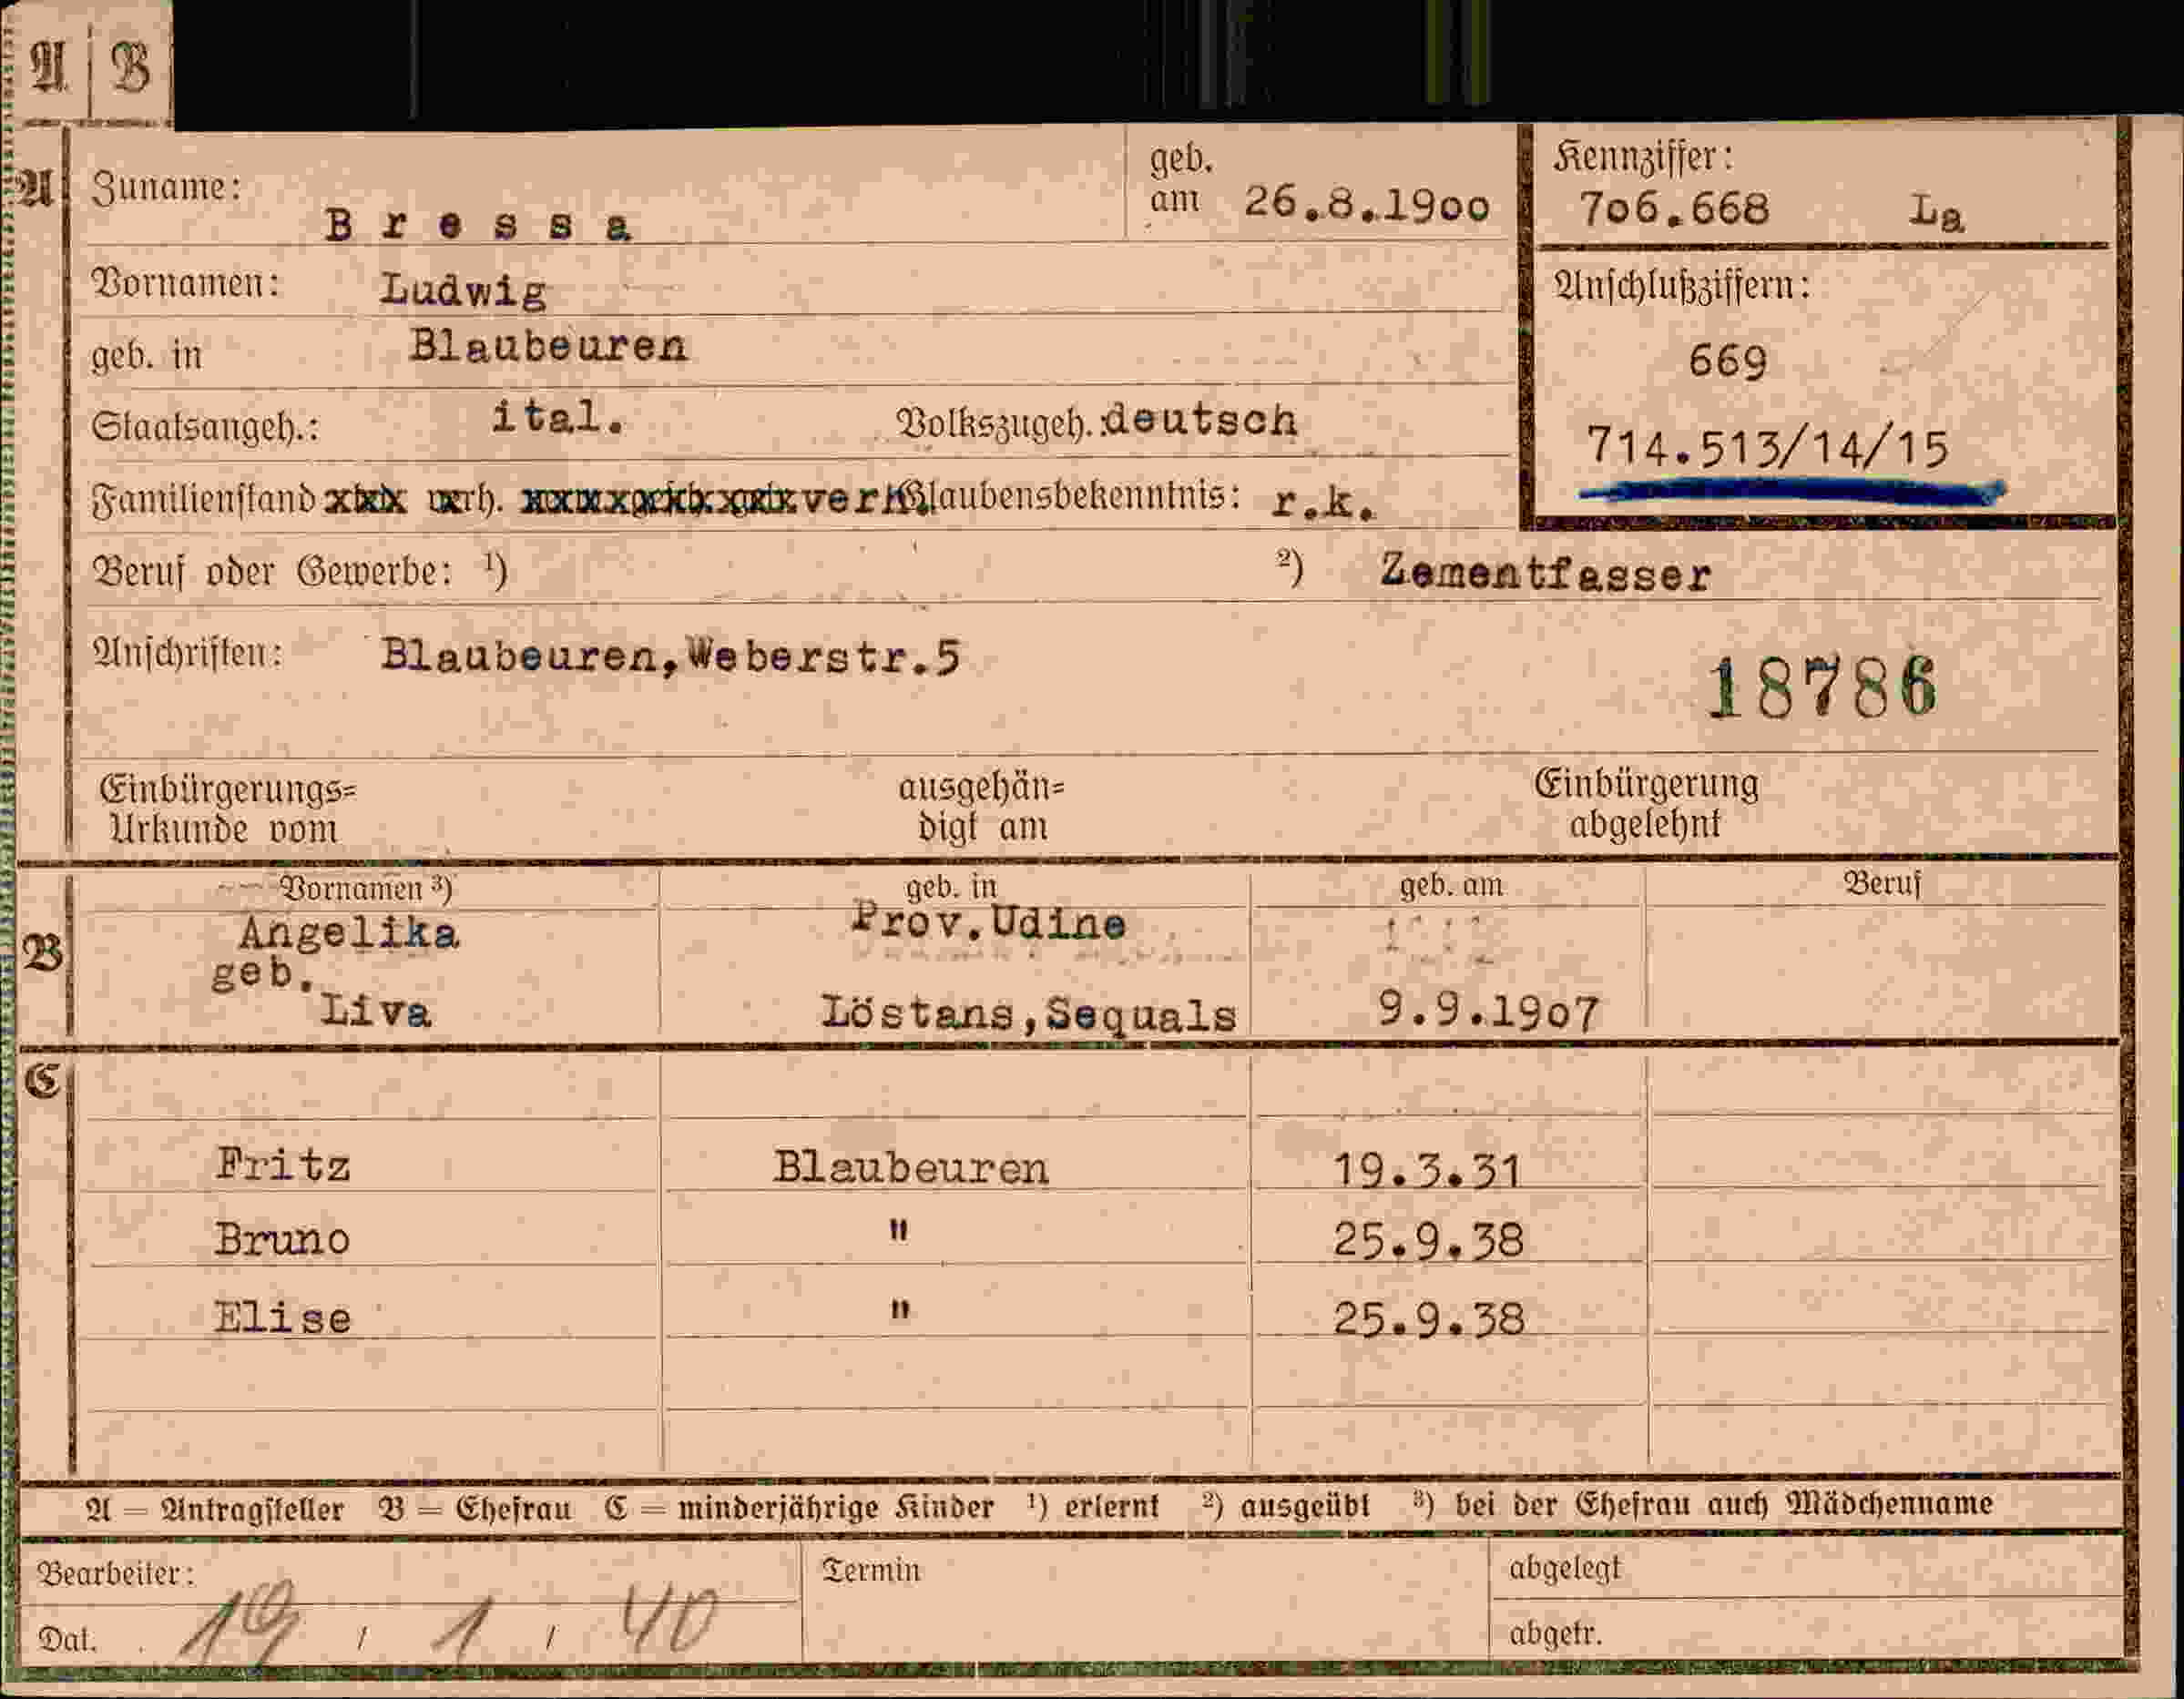 A | B
A Zuname: Bressa geb. am 26.8.1900 Kennziffer: 706.668 La
Vornamen: Ludwig Anschlußziffern:
geb. in Blaubeuren 669
Staatsangeh.: ital. Volkszugeh.: deutsch 714.513/14/15
Familienstand verh. Glaubensbekenntnis: r.k.
Beruf oder Gewerbe: ¹) ²) Zementfasser
Anschriften: Blaubeuren,Weberstr.5
18786
Einbürgerungs= ausgehän= Einbürgerung
Urkunde vom digt am abgelehnt
Vornamen ³) geb. in geb. am Beruf
B Angelika Prov.Udine
geb.
Liva Löstans,Sequals 9.9.1907
C
Fritz Blaubeuren 19.3.31
Bruno " 25.9.38
Elise " 25.9.38
A = Antragsteller B = Ehefrau C = minderjährige Kinder ¹) erlernt ²) ausgeübt ³) bei der Ehefrau auch Mädchenname
Bearbeiter: Termin abgelegt
Dat. 19 / 1 / 40 abgetr.